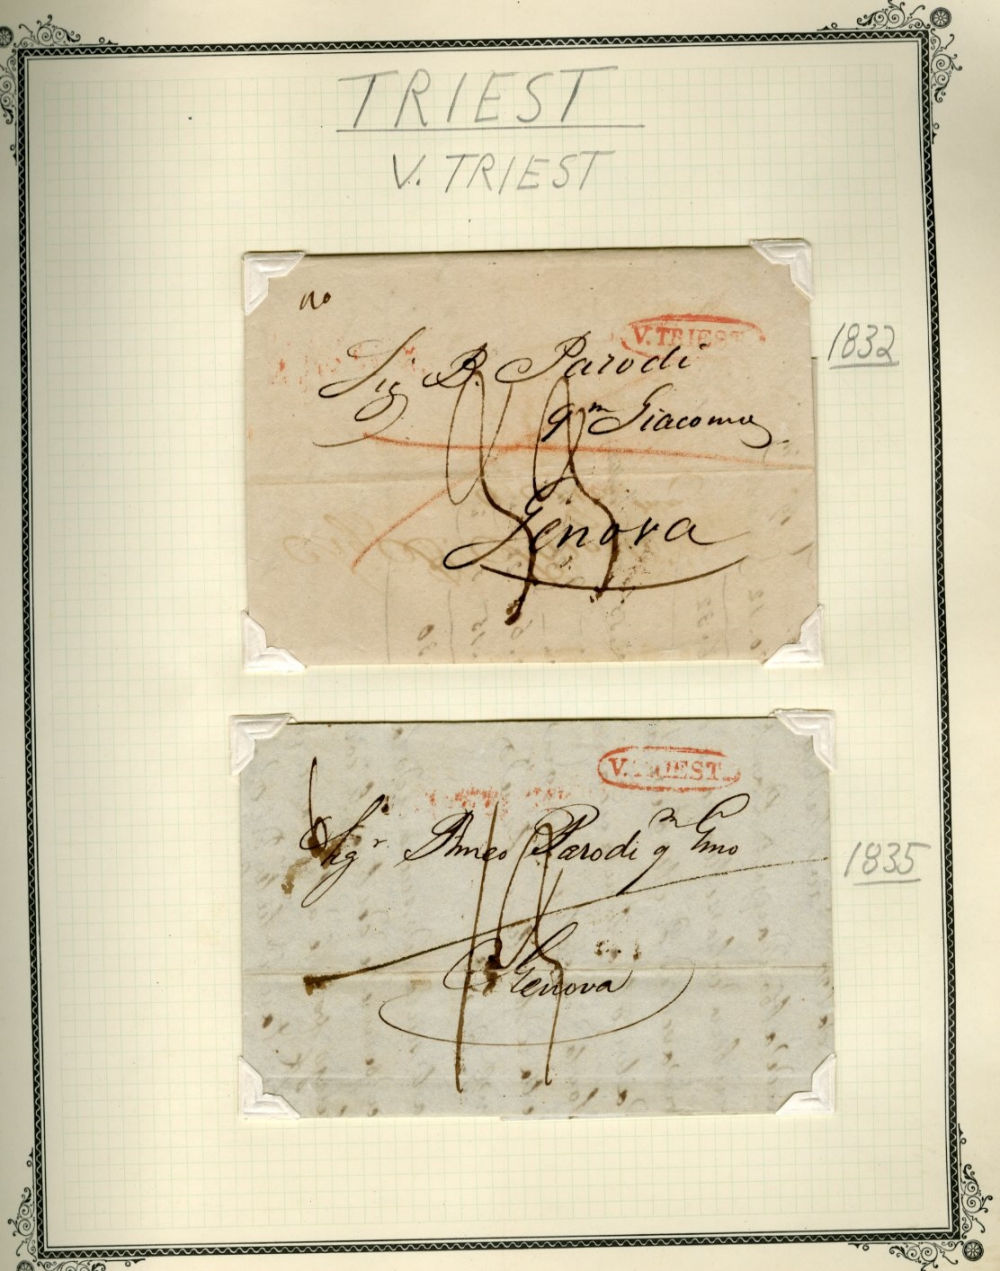 TRIEST
V. TRIEST
V. TRIEST.
Sig B. Parodi
qm Giacomo
Genova
1832
V. TRIEST.
Sigr Parodi qm Gmo
Genova
1835